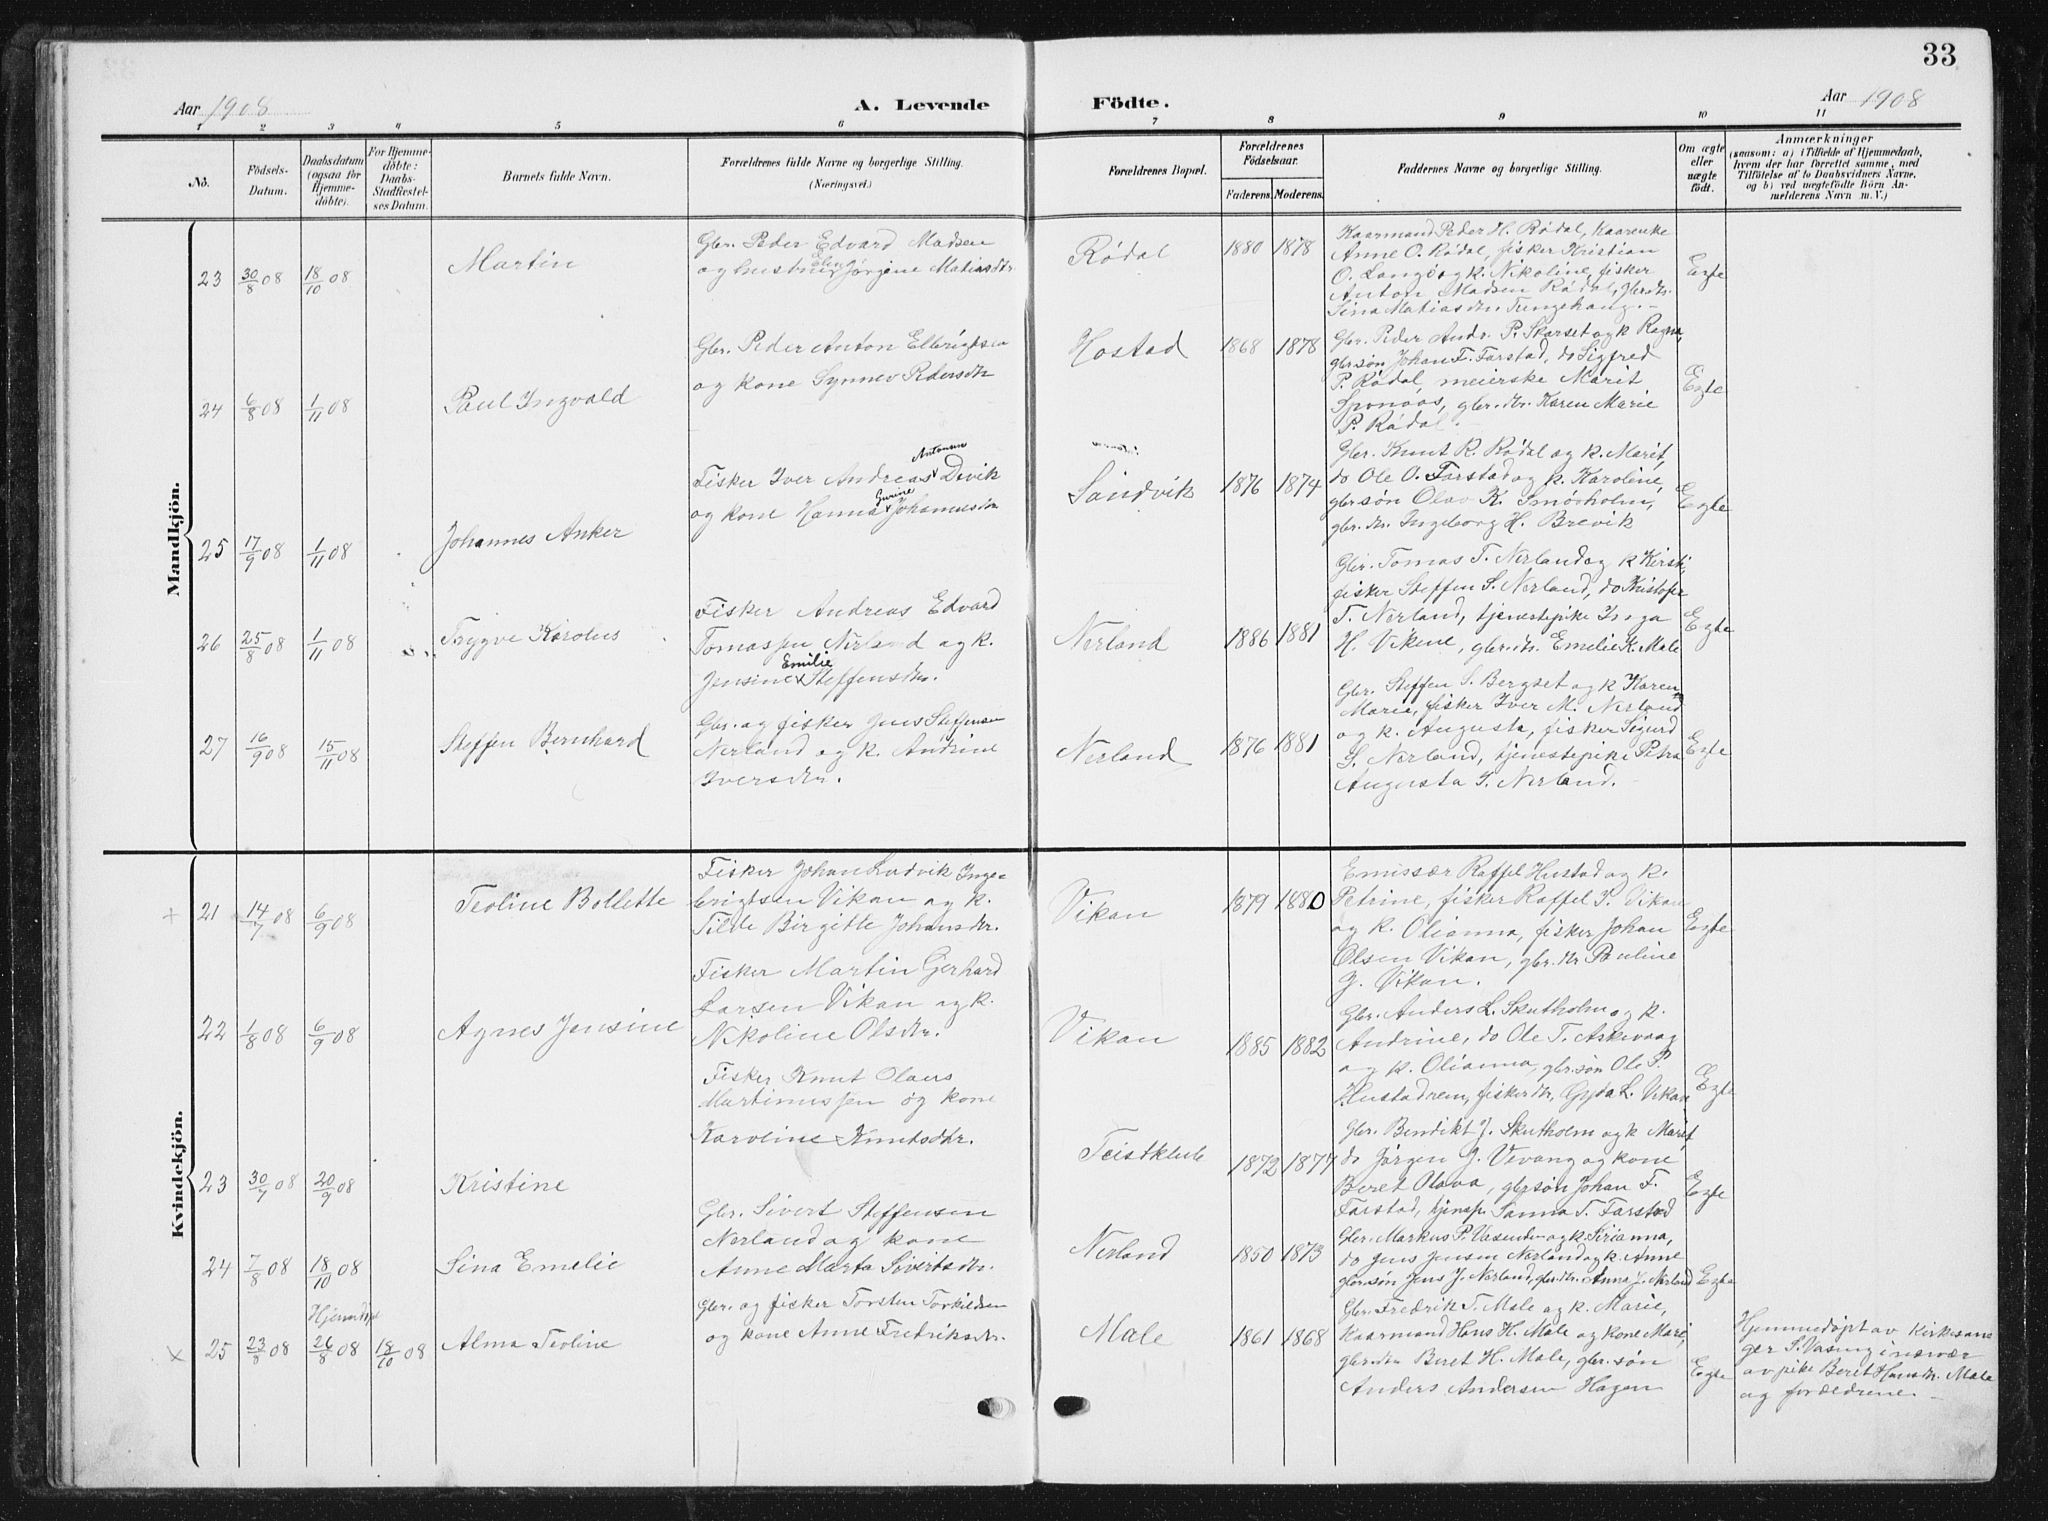 33
Aar 1908
A. Levende
Födte.
Aar 1908
1 2 3 4 5 6 7 8 9 10 11
No.
Födsels-
Datum.
Daabsdatum
(ogsaa for
Hjemme-
döbte).
For Hjemme-
döbte:
Daabs-
Stadfæstel-
ses Datum.
Barnets fulde Navn.
Forældrenes fulde Navne og borgerlige Stilling.
(Næringsvei.)
Forældrenes Bopæl.
Forældrenes
Födselsaar.
Faderens. Moderens.
Faddernes Navne og borgerlige Stilling.
Om ægte
eller
uægte
födt.
Anmærkninger
(saasom: a) i Tilfælde af Hjemmedaab,
hvem der har forrettet samme, med
Tilföielse af to Daabsvidners Navne,
og b) ved uægtefödte Börn An-
melderens Navn m. V.)
Mandkjön.
23 30/8 08 18/10 08
Martin
Gbr. Peder Edvard Madsen
og hustru Elen Jørgine Matiasdtr
Rødal
1880 1878
Kaarmand Peder H. Rødal, Kaarenke
Anne O. Rødal, fisker Kristian
O. Langø og k. Nikoline, fisker
Anton Madsen Rødal, gbr.dtr.
Sina Matiasdtr. Tungehaug.
Egte
24 6/8 08 1/11 08
Paul Ingvald
Gbr. Peder Anton Ellevigtsen
og kone Synnev Pedersdtr
Hostad
1868 1878
Gbr. Peder Andr. P. Skarset og k Ragna,
gbr.søn Johan F. Farstad, do Sigfred
P. Rødal, meierske Marit
Sponaas, gbr.dtr. Karen Marie
P. Rødal.
Egte
25 17/9 08 1/11 08
Johannes Anker
Fisker Iver Andreas Antonsen Divik
og kone Hanna Gurine Johannesdtr
Sandvik
1876 1874
Gbr. Knut R. Rødal og k. Marit,
do Ole O. Farstad og k. Karoline,
gbr.søn Olav K. Smørholm,
gbr. dtr. Ingeborg H. Brevik
Egte
26 25/8 08 1/11 08
Trygve Karolus
Fisker Andreas Edvard
Tomassen Nerland og k.
Jensine Emilie Steffensdtr.
Nerland
1886 1881
Gbr. Tomas T. Nerland og k Kirsti,
fisker Steffen S. Nerland, do Kristofer
T. Nerland, tjenestepike Inga
H. Vikene, gbr.dtr. Emelie K. Male
Egte
27 16/9 08 15/11 08
Steffen Bernhard
Gbr. og fisker Jens Steffensen
Nerland og k. Andrine
Iversdtr.
Nerland
1876 1881
Gbr. Steffen S. Bergset og k Karen
Marie, fisker Iver M. Nerland
og k. Augusta, fisker Sigurd
S. Nerland, tjenestepike Petra
Augusta I. Nerland.
Egte
Kvindekjön.
+ 21 14/7 08 6/9 08
Teoline Bollette
Fisker Johan Ludvik Inge-
brigtsen Vikan og k.
Tilde Birgitte Johansdtr.
Vikan
1879 1880
Emissær Raffel Hustad og k.
Petrine, fisker Raffel I. Vikan
og k. Olianna, fisker Johan
Olsen Vikan, gbr. dtr Pauline
J. Vikan.
Egte
22 1/8 08 6/9 08
Agnes Jensine
Fisker Martin Gerhard
Larsen Vikan og k.
Nikoline Olsdtr.
Vikan
1885 1882
Gbr. Anders L. Skutholm og k.
Andrine, do Ole T. Askevaag
og k. Olianna, gbr.søn Ole P.
Hustadnem, fisker dtr. Gyda L. Vikan
Egte
23 30/7 08 20/9 08
Kristine
Fisker Knut Olaus
Martinussen og kone
Karoline Knutsdtr.
Teistklub
1872 1877
Gbr. Bendikt J. Skutholm og k Marit,
do Jørgen J. Vevang og kone
Beret Olava, gbrsøn Johan F.
Farstad, tjnsp. Sanna T. Farstad
Egte
24 7/8 08 18/10 08
Sina Emelie
Gbr. Sivert Steffensen
Nerland og kone
Anne Marta Sivertsdtr.
Nerland
1850 1873
Gbr. Markus P. Vasenden og k. Sirianna,
do Jens Jensen Nerland og k. Anne
gbr.søn Jens J. Nerland, gbr. dtr. Anna J. Nerland
Egte
Hjemdøpt
x 25 23/8 08 26/8 08 18/10 08
Alma Teoline
Gbr. og fisker Torsten Torkildsen
og kone Anne Fredriksdtr.
Male
1861 1868
Gbr. Fredrik T. Male og k. Marie,
Kaarmand Hans H. Male og kone Mari,
gbr.dtr Beret H. Male, gbr. søn
Anders Andersen Hagen
Egte
Hjemmedøpt av kirkesan
ger S. Vaseng i nærvær
av pike Beret Hansdtr. Male
og forældrene.